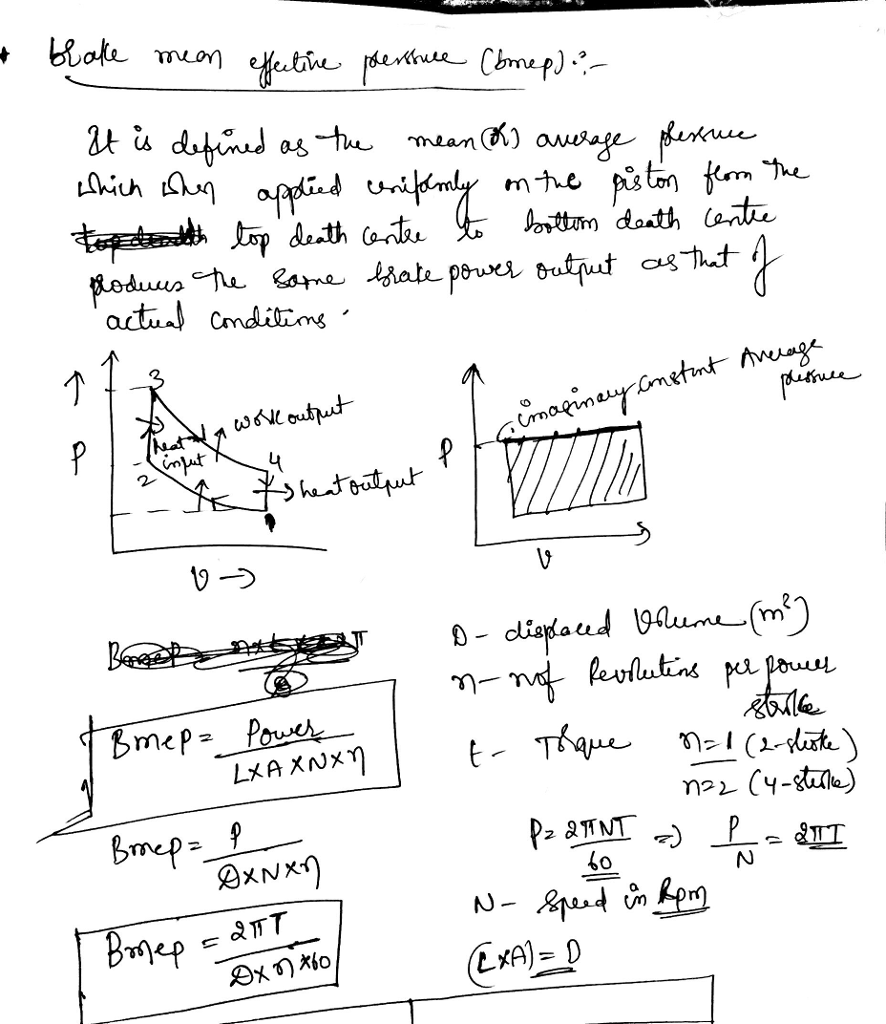 * brake mean effective pressure (bmep) :-
It is defined as the mean (or) average pressure
which when applied uniformly on the piston from the
top death centre to bottom death centre
produces the same brake power output as that of
actual conditions.
↑
P
3
heat input
work output
2
4
→ heat output
1
V →
P
imaginary constant Average pressure
V
Bmep = Power / L×A×N×η
Bmep = P / D×N×η
Bmep = 2πT / D×n×60
D - displaced Volume (m³)
n - no of Revolutins per power
stroke
t - Torque n=1 (2-stroke)
n=2 (4-stroke)
P = 2πNT / 60 => P / N = 2πT
N - Speed in Rpm
(L×A) = D